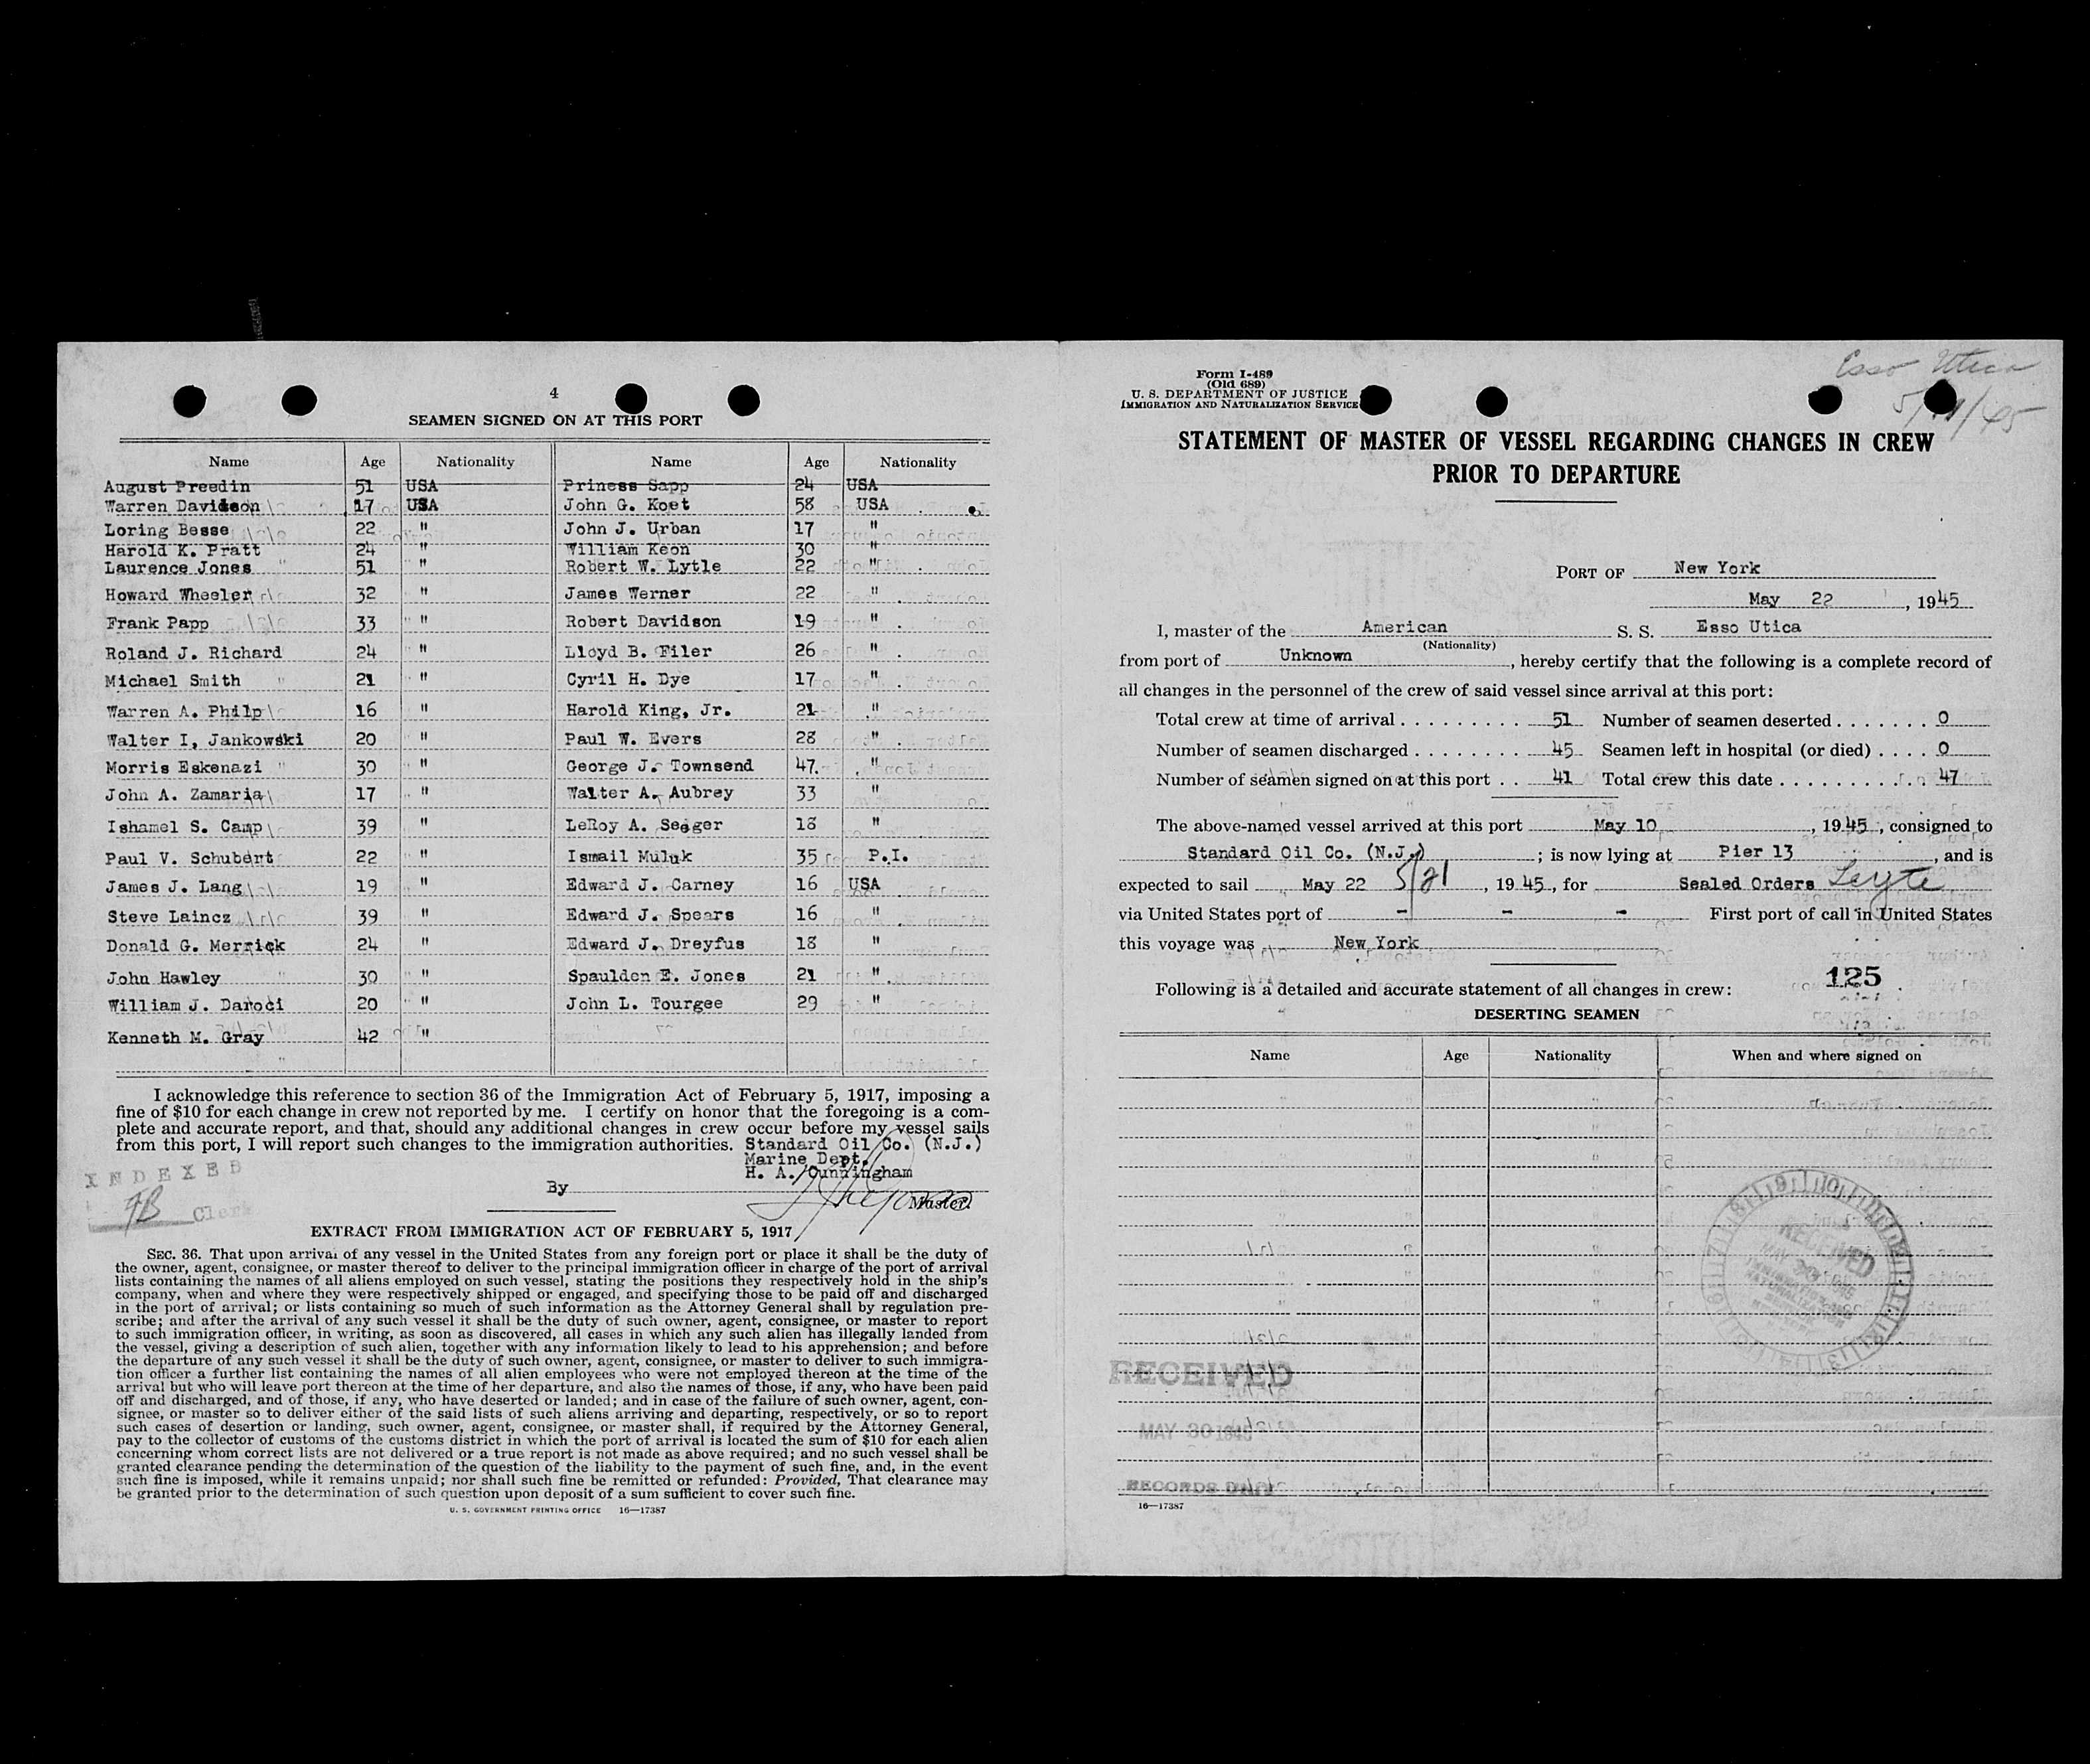 4
SEAMEN SIGNED ON AT THIS PORT
Name Age Nationality Name Age Nationality
August Preedin 51 USA Priness Sapp 24 USA
Warren Davidson 17 USA John G. Koet 58 USA
Loring Besse 22 " John J. Urban 17 "
Harold K. Pratt 24 " William Keon 30 "
Laurence Jones 51 " Robert W. Lytle 22 "
Howard Wheeler 32 " James Werner 22 "
Frank Papp 33 " Robert Davidson 19 "
Roland J. Richard 24 " Lloyd B. Filer 26 "
Michael Smith 21 " Cyril H. Dye 17 "
Warren A. Philp 16 " Harold King, Jr. 21 "
Walter I, Jankowski 20 " Paul W. Evers 28 "
Morris Eskenazi 30 " George J. Townsend 47. "
John A. Zamaria 17 " Walter A. Aubrey 33 "
Ishamel S. Camp 39 " LeRoy A. Seeger 18 "
Paul V. Schubert 22 " Ismail Muluk 35 P.I.
James J. Lang 19 " Edward J. Carney 16 USA
Steve Laincz 39 " Edward J. Spears 16 "
Donald G. Merrick 24 " Edward J. Dreyfus 18 "
John Hawley 30 " Spaulden E. Jones 21 "
William J. Daroci 20 " John L. Tourgee 29 "
Kenneth M. Gray 42 "
I acknowledge this reference to section 36 of the Immigration Act of February 5, 1917, imposing a
fine of $10 for each change in crew not reported by me. I certify on honor that the foregoing is a com-
plete and accurate report, and that, should any additional changes in crew occur before my vessel sails
from this port, I will report such changes to the immigration authorities. Standard Oil Co. (N.J.)
Marine Dept.
H. A. Cunningham
INDEXED
By Master.
Clerk
EXTRACT FROM IMMIGRATION ACT OF FEBRUARY 5, 1917
SEC. 36. That upon arrival of any vessel in the United States from any foreign port or place it shall be the duty of
the owner, agent, consignee, or master thereof to deliver to the principal immigration officer in charge of the port of arrival
lists containing the names of all aliens employed on such vessel, stating the positions they respectively hold in the ship's
company, when and where they were respectively shipped or engaged, and specifying those to be paid off and discharged
in the port of arrival; or lists containing so much of such information as the Attorney General shall by regulation pre-
scribe; and after the arrival of any such vessel it shall be the duty of such owner, agent, consignee, or master to report
to such immigration officer, in writing, as soon as discovered, all cases in which any such alien has illegally landed from
the vessel, giving a description of such alien, together with any information likely to lead to his apprehension; and before
the departure of any such vessel it shall be the duty of such owner, agent, consignee, or master to deliver to such immigra-
tion officer a further list containing the names of all alien employees who were not employed thereon at the time of the
arrival but who will leave port thereon at the time of her departure, and also the names of those, if any, who have been paid
off and discharged, and of those, if any, who have deserted or landed; and in case of the failure of such owner, agent, con-
signee, or master so to deliver either of the said lists of such aliens arriving and departing, respectively, or so to report
such cases of desertion or landing, such owner, agent, consignee, or master shall, if required by the Attorney General,
pay to the collector of customs of the customs district in which the port of arrival is located the sum of $10 for each alien
concerning whom correct lists are not delivered or a true report is not made as above required; and no such vessel shall be
granted clearance pending the determination of the question of the liability to the payment of such fine, and, in the event
such fine is imposed, while it remains unpaid; nor shall such fine be remitted or refunded: Provided, That clearance may
be granted prior to the determination of such question upon deposit of a sum sufficient to cover such fine.
U. S. GOVERNMENT PRINTING OFFICE 16—17387
Esso Utica
Form I-489
(Old 689)
U. S. DEPARTMENT OF JUSTICE
IMMIGRATION AND NATURALIZATION SERVICE
STATEMENT OF MASTER OF VESSEL REGARDING CHANGES IN CREW
PRIOR TO DEPARTURE
PORT OF New York
May 22, 1945
I, master of the American S. S. Esso Utica
(Nationality)
from port of Unknown, hereby certify that the following is a complete record of
all changes in the personnel of the crew of said vessel since arrival at this port:
Total crew at time of arrival . . . . . . . . . 51 Number of seamen deserted . . . . . . . 0
Number of seamen discharged . . . . . . . . 45 Seamen left in hospital (or died) . . . . 0
Number of seamen signed on at this port . . 41 Total crew this date . . . . . . . . . . . 47
The above-named vessel arrived at this port May 10, 1945, consigned to
Standard Oil Co. (N.J.) ; is now lying at Pier 13, and is
expected to sail May 22 5/21, 1945, for Sealed Orders Leyte
via United States port of - - - First port of call in United States
this voyage was New York
125
Following is a detailed and accurate statement of all changes in crew:
DESERTING SEAMEN
Name Age Nationality When and where signed on
RECEIVED
RECEIVED
MAY 30 1945
RECORDS
16—17387